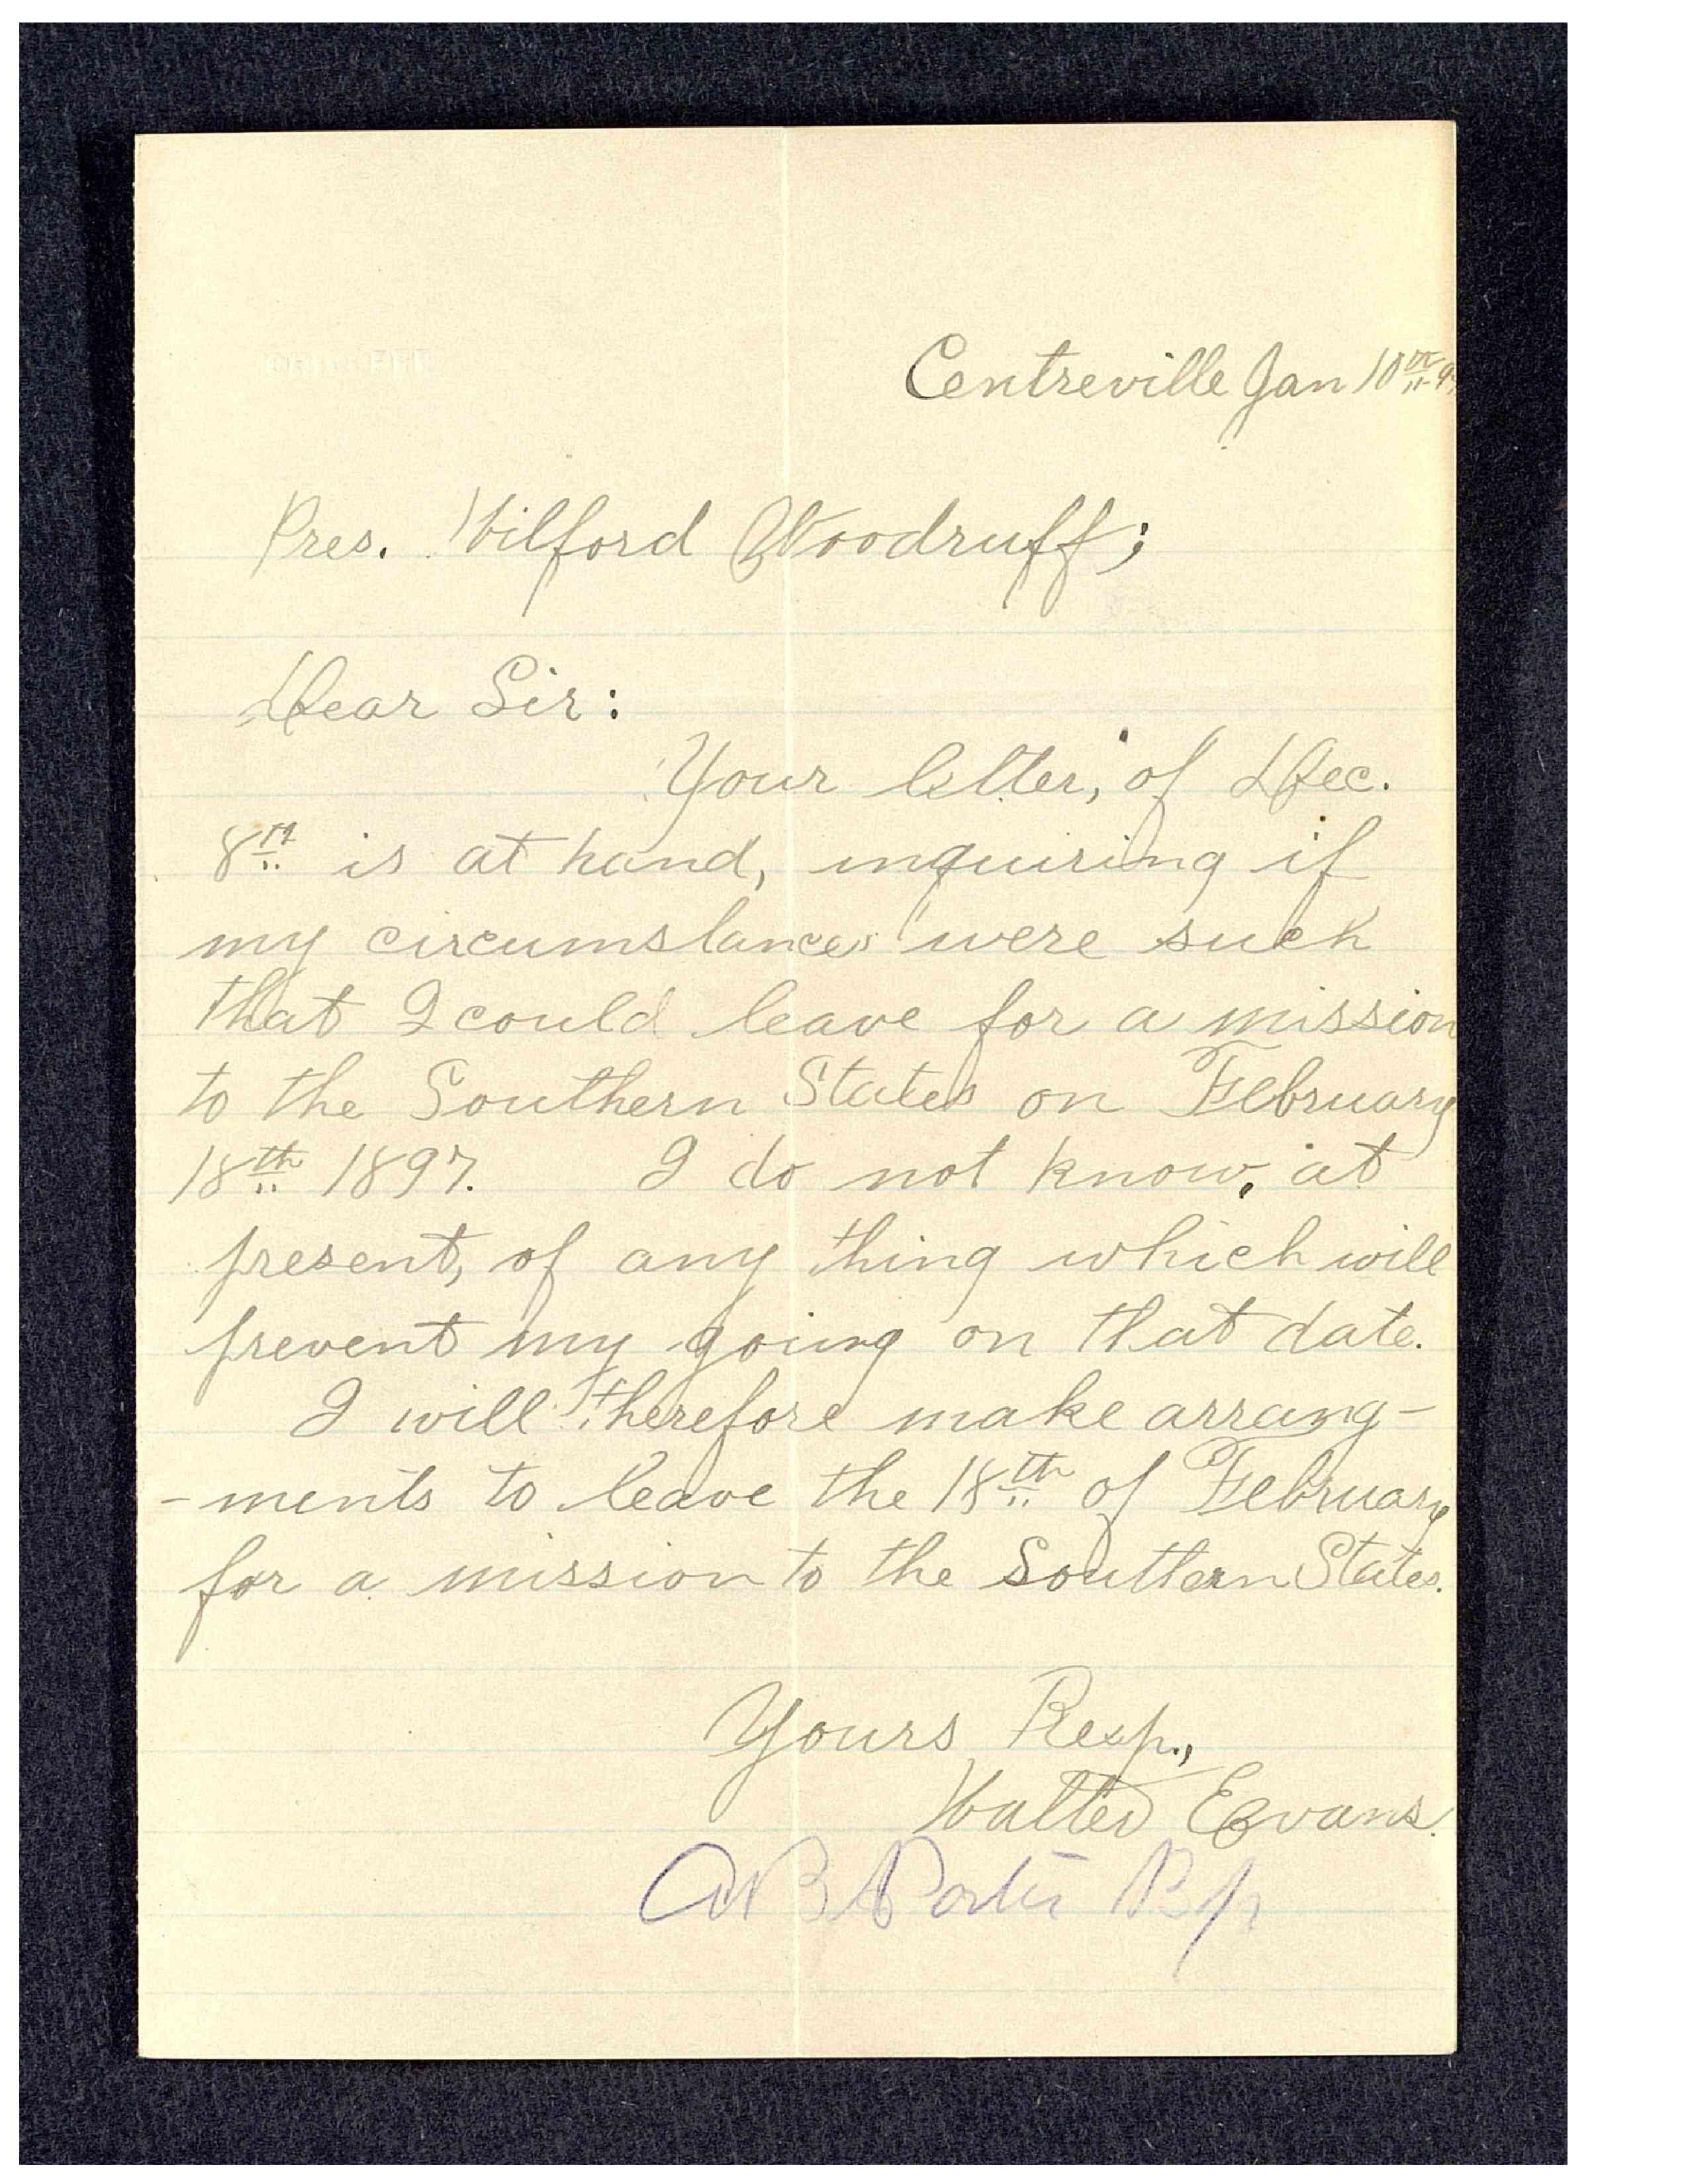 Centreville Jan 10th
Pres. Wilford Woodruff;
Dear Sir:
Your letter, of Dec.
8th is at hand, inquiring if
my circumstances were such
that I could leave for a mission
to the Southern States on February
18th 1897. I do not know, at
present, of any thing which will
prevent my going on that date.
I will therefore make arrang-
-ments to leave the 18th of February
for a mission to the Southern States.
Yours Resp.,
Walter Evans.
Porter Bp